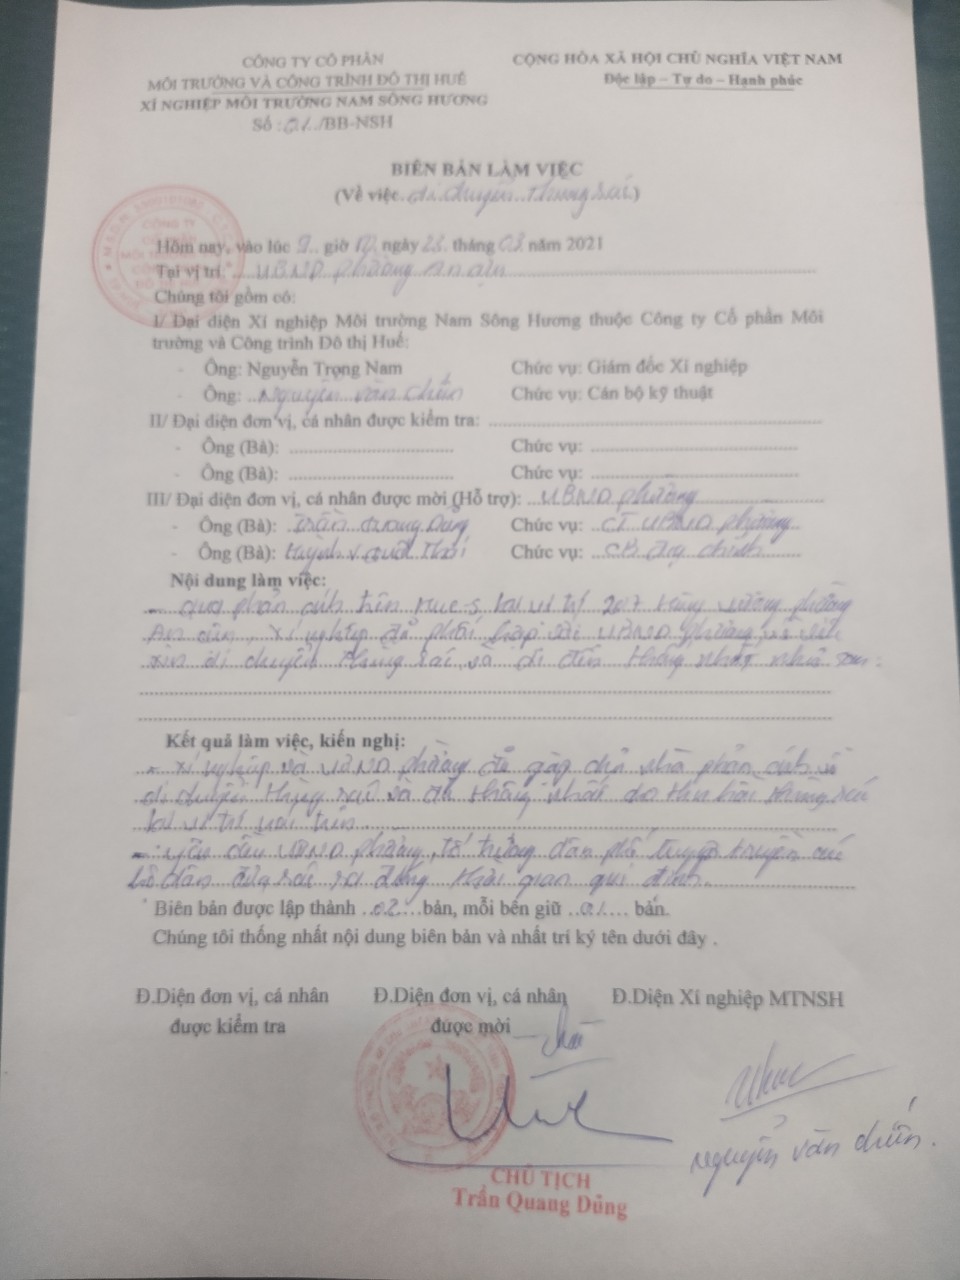 CÔNG TY CỔ PHẦN
MÔI TRƯỜNG VÀ CÔNG TRÌNH ĐÔ THỊ HUẾ
XÍ NGHIỆP MÔI TRƯỜNG NAM SÔNG HƯƠNG
Số :01./BB-NSH
CỘNG HÒA XÃ HỘI CHỦ NGHĨA VIỆT NAM
Độc lập – Tự do – Hạnh phúc
BIÊN BẢN LÀM VIỆC
(Về việc.di chuyển thùng rác)
Hôm nay, vào lúc 9.. giờ 10 ngày 23. tháng 03 năm 2021
Tại vị trí: UBND phường An
Chúng tôi gồm có:
I/ Đại diện Xí nghiệp Môi trường Nam Sông Hương thuộc Công ty Cổ phần Môi
trường và Công trình Đô thị Huế:
- Ông: Nguyễn Trọng Nam Chức vụ: Giám đốc Xí nghiệp
- Ông: Nguyễn văn Chiến Chức vụ: Cán bộ kỹ thuật
II/ Đại diện đơn vị, cá nhân được kiểm tra:
- Ông (Bà): Chức vụ:
- Ông (Bà): Chức vụ:
III/ Đại diện đơn vị, cá nhân được mời (Hỗ trợ): UBND phường
- Ông (Bà): Trần Quang Dũng Chức vụ: CT UBND phường
- Ông (Bà): Huỳnh Chức vụ: CB chính
Nội dung làm việc:
- qua phản ánh trên Hue-s tại vị trí Hùng vương phường
An , xí nghiệp đã phối hợp với UBND phường
di chuyển thùng rác và đi đến thống nhất như sau:
Kết quả làm việc, kiến nghị:
- Xí nghiệp và UBND phường đã gặp chủ nhà phản ánh về
di chuyển thùng rác và đã thống nhất thu hồi thùng rác
tại vị trí nói trên.
- yêu cầu UBND phường, tổ trưởng dân phố tuyên truyền các
hộ dân đưa rác ra đúng thời gian qui định.
Biên bản được lập thành ..02....bản, mỗi bên giữ ..01.... bản.
Chúng tôi thống nhất nội dung biên bản và nhất trí ký tên dưới đây .
Đ.Diện đơn vị, cá nhân
được kiểm tra
Đ.Diện đơn vị, cá nhân
được mời
Đ.Diện Xí nghiệp MTNSH
CHỦ TỊCH
Trần Quang Dũng
Nguyễn văn chiến.